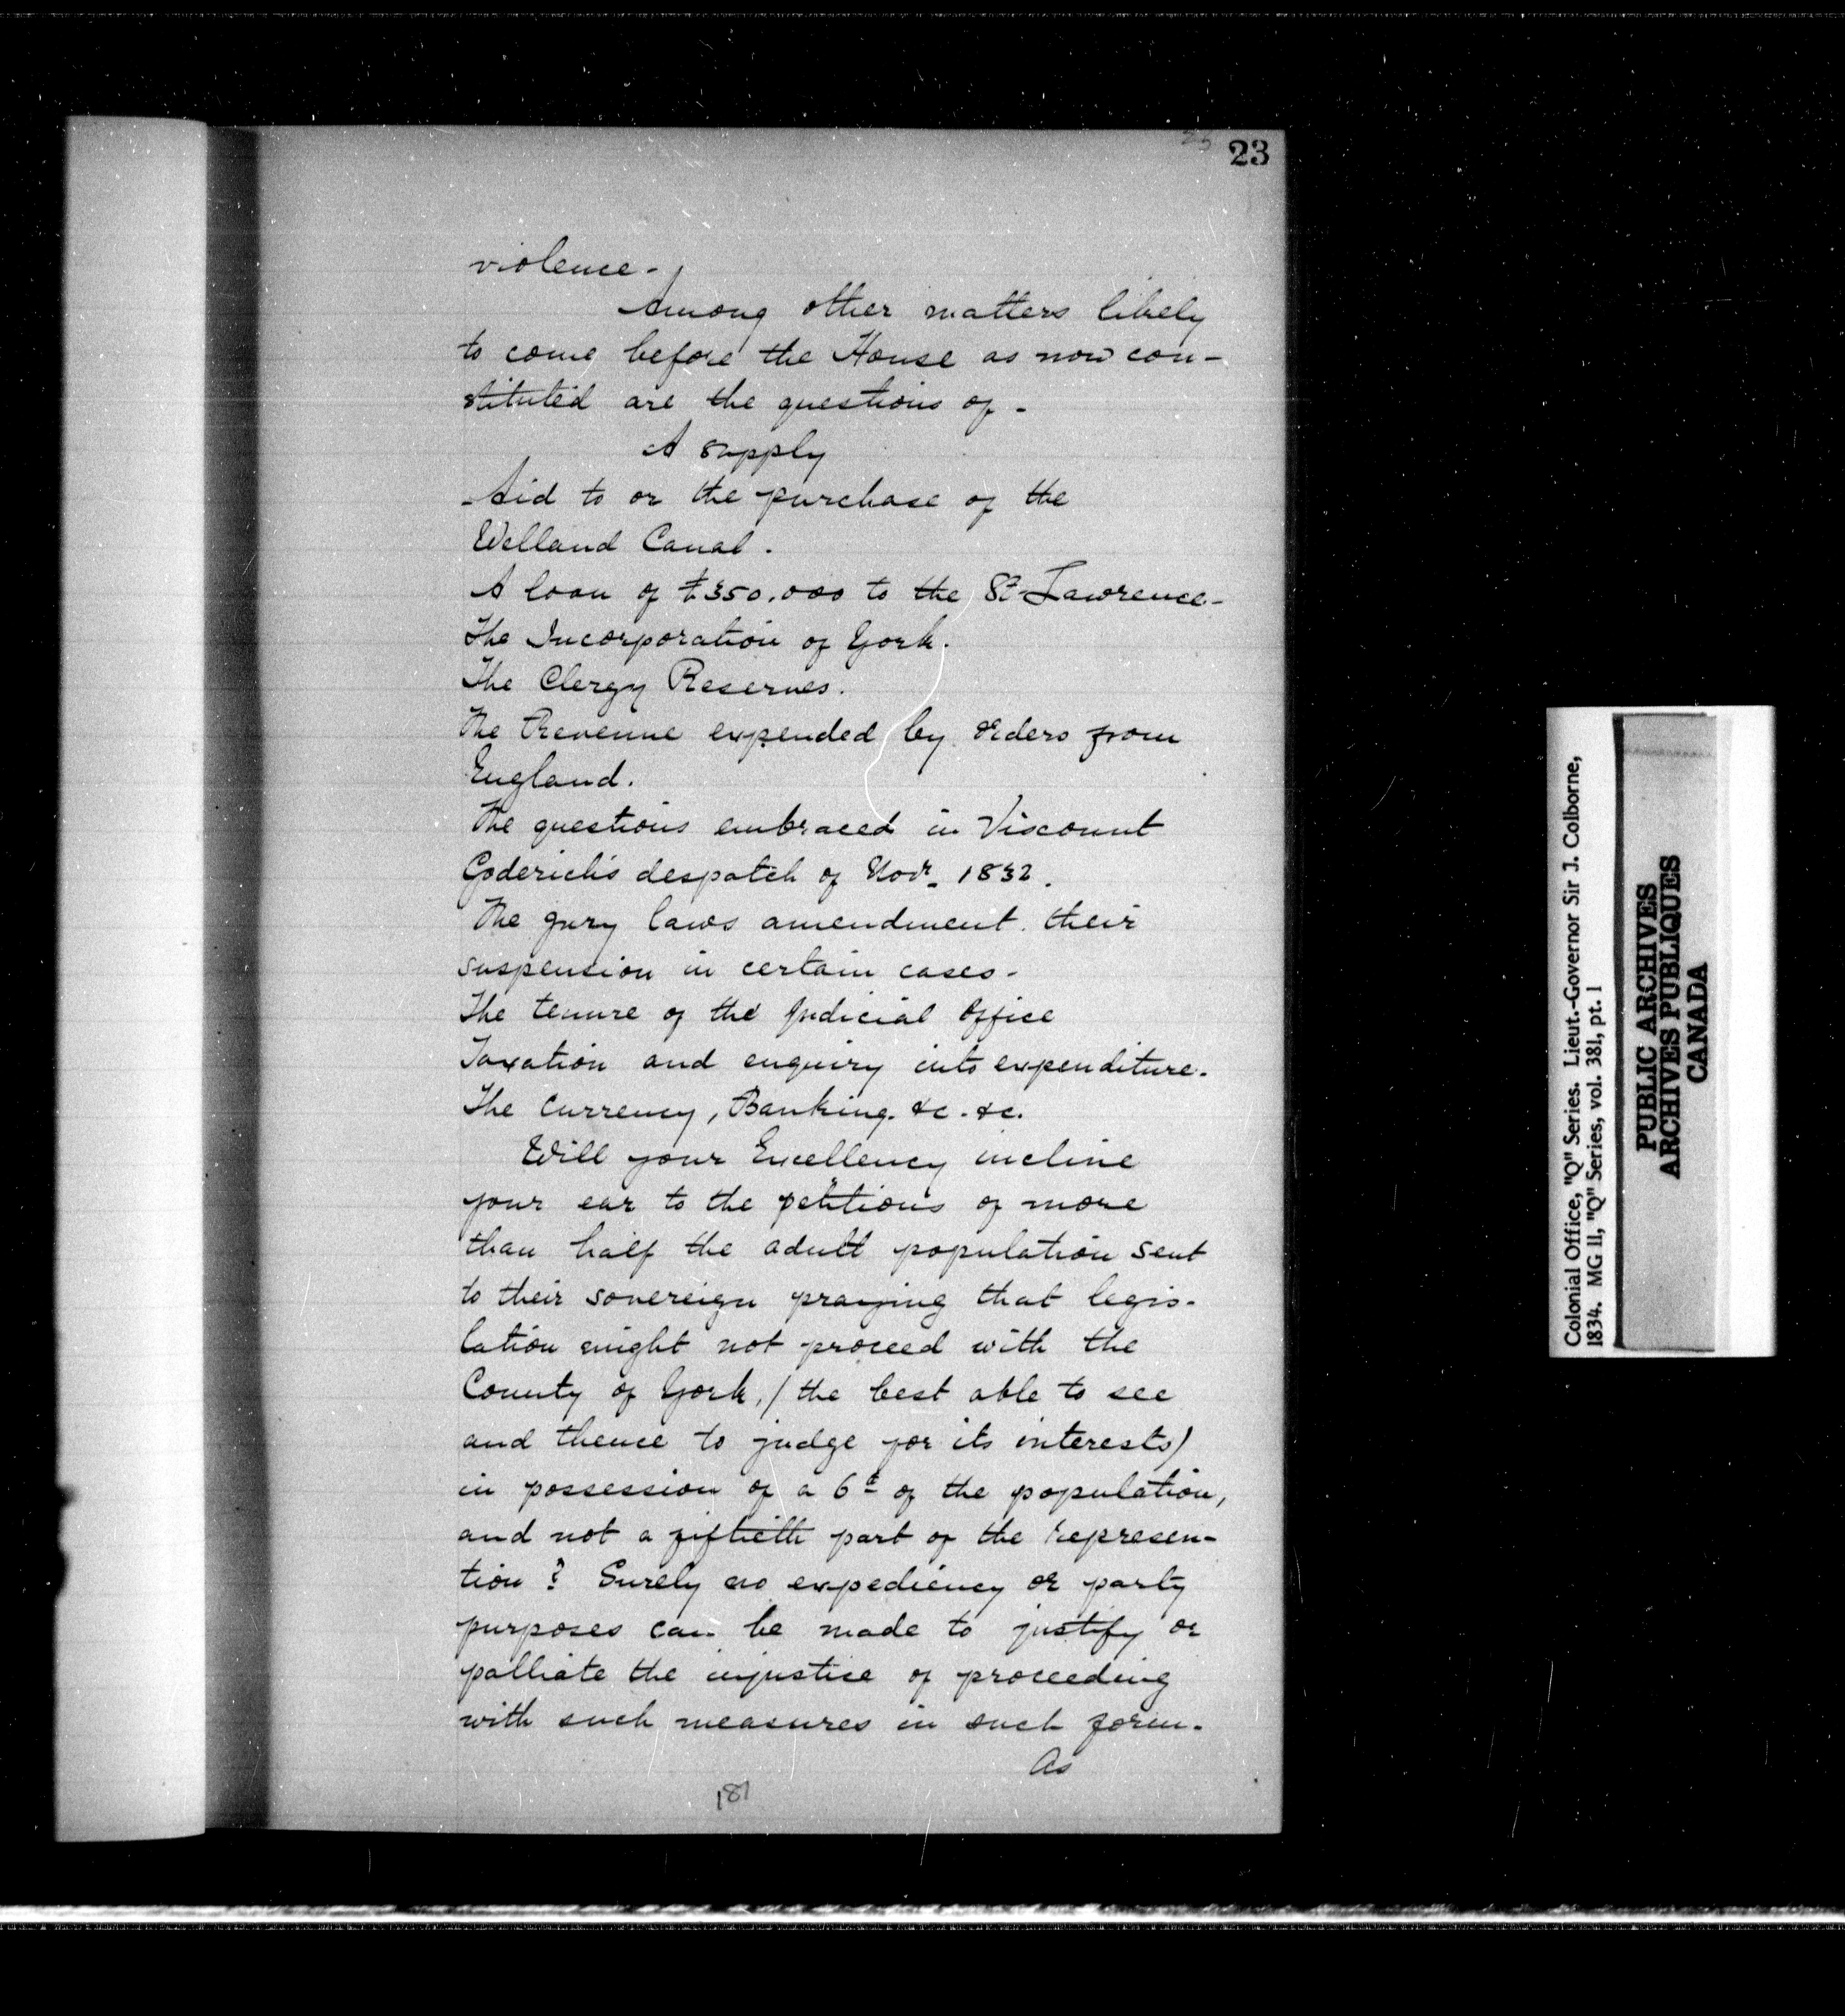 23
violence -
Among other matters likely
to come before the House as now con-
stituted are the questions of -
A supply
Aid to or the purchase of the
Welland Canal.
A loan of £350.000 to the St Lawrence -
The Incorporation of York.
The Clergy Reserves.
The Revenue expended by orders from
England.
The questions embraced in Viscount
Goderich's despatch of Novr. 1832.
The jury laws amendment. their
suspension in certain cases -
The tenure of the judicial office
Taxation and enquiry into expenditure.
The Currency, Banking. &c. &c.
Will your Excellency incline
your ear to the petitions of more
than half the adult population sent
to their sovereign praying that legis-
lation might not proceed with the
County of York, (the best able to see
and thence to judge for its interests)
in possession of a 6t of the population,
and not a fiftieth part of the represen-
tion? Surely no expediency or party
purposes can be made to justify or
palliate the injustice of proceeding
with such measures in such form.
As
181
Colonial Office, "Q" Series. Lieut.-Governor Sir J. Colborne,
1834. MG 11, "Q" Series, vol. 381, pt. 1
PUBLIC ARCHIVES
ARCHIVES PUBLIQUES
CANADA